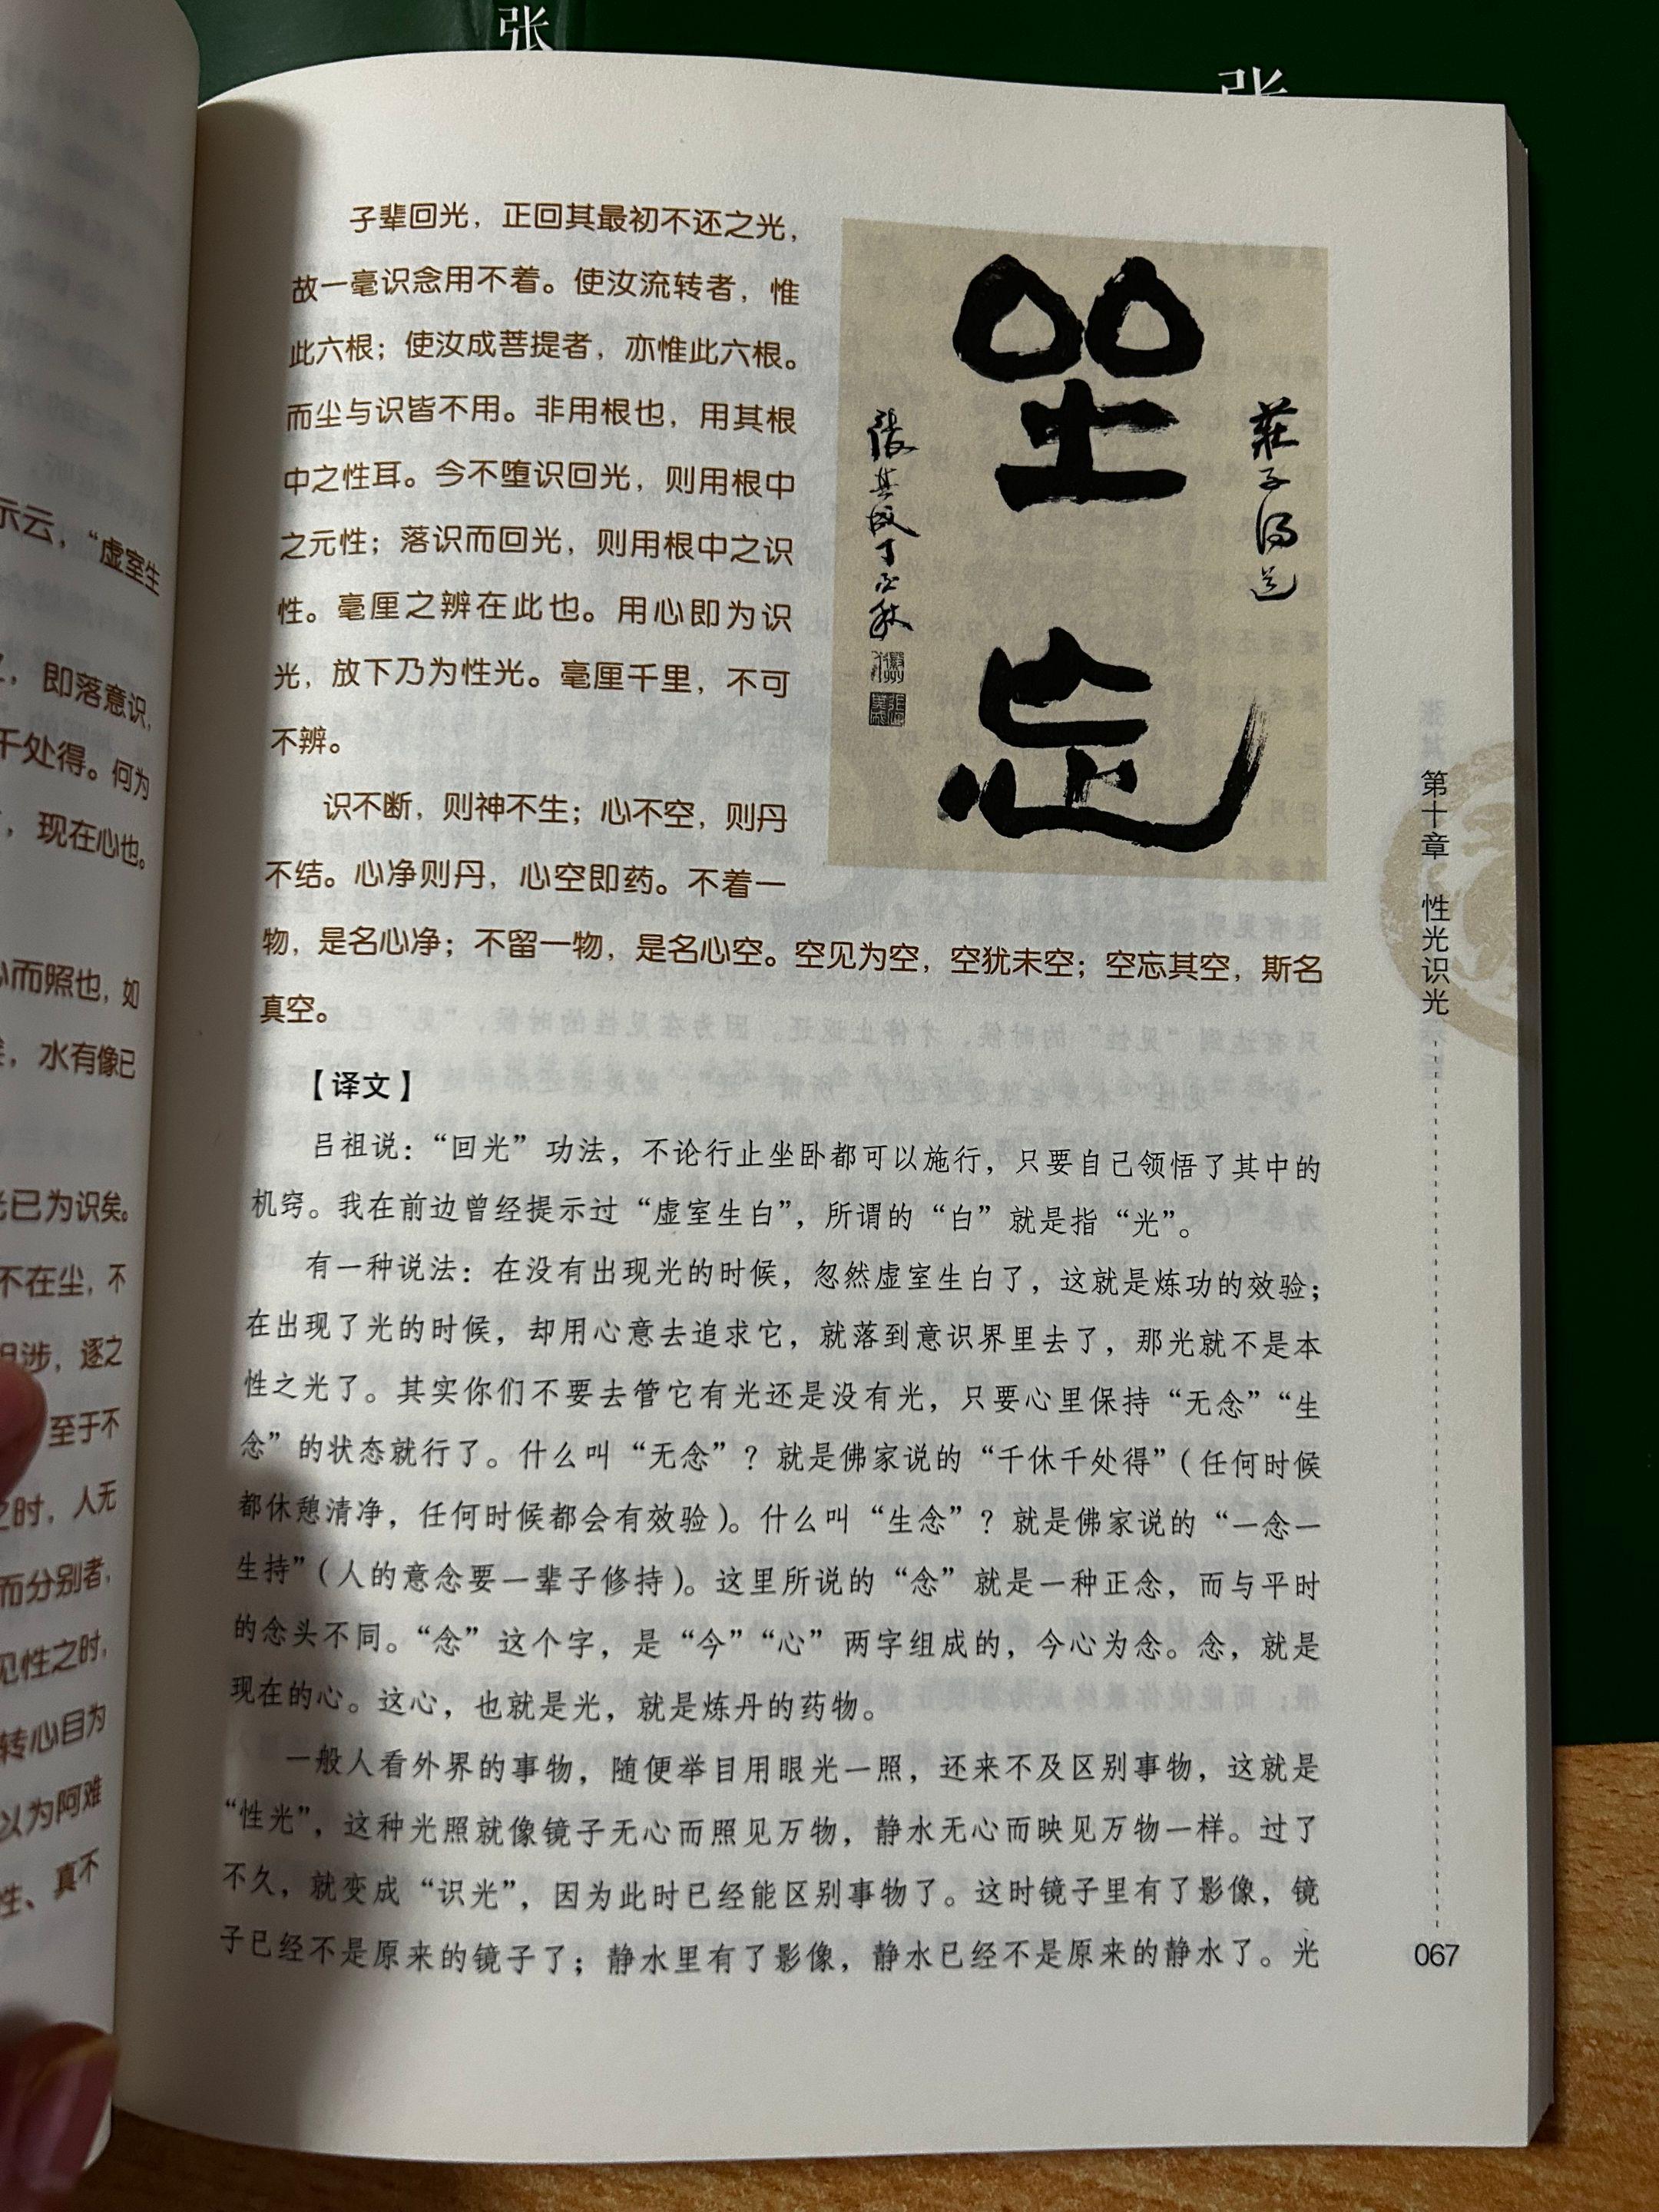 张
张
示云，“虚室生
即落意识，
千处得。何为
，现在心也。
心而照也，如
，水有像已
光已为识矣。
不在尘，不
涉，逐之
至于不
之时，人无
而分别者，
见性之时，
转心目为
以为阿难
性、真不
子辈回光，正回其最初不还之光，
故一毫识念用不着。使汝流转者，惟
此六根；使汝成菩提者，亦惟此六根。
而尘与识皆不用。非用根也，用其根
中之性耳。今不堕识回光，则用根中
之元性；落识而回光，则用根中之识
性。毫厘之辨在此也。用心即为识
光，放下乃为性光。毫厘千里，不可
不辨。
识不断，则神不生；心不空，则丹
不结。心净则丹，心空即药。不着一
物，是名心净；不留一物，是名心空。空见为空，空犹未空；空忘其空，斯名
真空。
坐忘
莊子
張其成丁酉秋
【译文】
吕祖说：“回光”功法，不论行止坐卧都可以施行，只要自己领悟了其中的
机窍。我在前边曾经提示过“虚室生白”，所谓的“白”就是指“光”。
有一种说法：在没有出现光的时候，忽然虚室生白了，这就是炼功的效验；
在出现了光的时候，却用心意去追求它，就落到意识界里去了，那光就不是本
性之光了。其实你们不要去管它有光还是没有光，只要心里保持“无念”“生
念”的状态就行了。什么叫“无念”？就是佛家说的“千休千处得”（任何时候
都休憩清净，任何时候都会有效验）。什么叫“生念”？就是佛家说的“一念一
生持”（人的意念要一辈子修持）。这里所说的“念”就是一种正念，而与平时
的念头不同。“念”这个字，是“今”“心”两字组成的，今心为念。念，就是
现在的心。这心，也就是光，就是炼丹的药物。
一般人看外界的事物，随便举目用眼光一照，还来不及区别事物，这就是
“性光”，这种光照就像镜子无心而照见万物，静水无心而映见万物一样。过了
不久，就变成“识光”，因为此时已经能区别事物了。这时镜子里有了影像，镜
子已经不是原来的镜子了；静水里有了影像，静水已经不是原来的静水了。光
第十章 性光识光
067